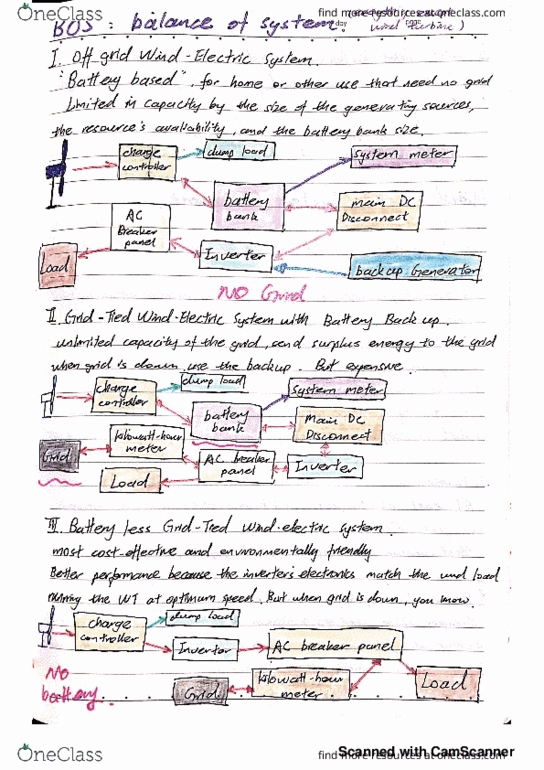 OneClass
find more resources at oneclass.com
BOS : balance of system.
wind turbine )
I. Off grid Wind-Electric System.
"Battery based", for home or other use that need no grid
Limited in capacity by the size of the generating sources,
the resource's availability, and the battery bank size.
charge controller
dump load
system meter
battery bank
main DC Disconnect
AC Breaker panel
Inverter
Load
backup Generator
NO Grind
II. Grid-Tied Wind-Electric System with Battery Back up.
unlimited capacity of the grid, and surplus energy to the grid
when grid is down, use the backup. But expensive.
charge controller
dump load
system meter
battery bank
main DC Disconnect
Grid
kilowatt-hour meter
AC breaker panel
Inverter
Load
III. Battery less Grid-Tied Wind-electric system.
most cost-effective and environmentally friendly
Better performance because the inverter's electronics match the wind load
the WT at optimum speed. But when grid is down, you know.
charge controller
dump load
Invertor
AC breaker panel
NO
battery.
Grid
kilowatt-hour meter
Load
Scanned with CamScanner
OneClass
find more resources at oneclass.com